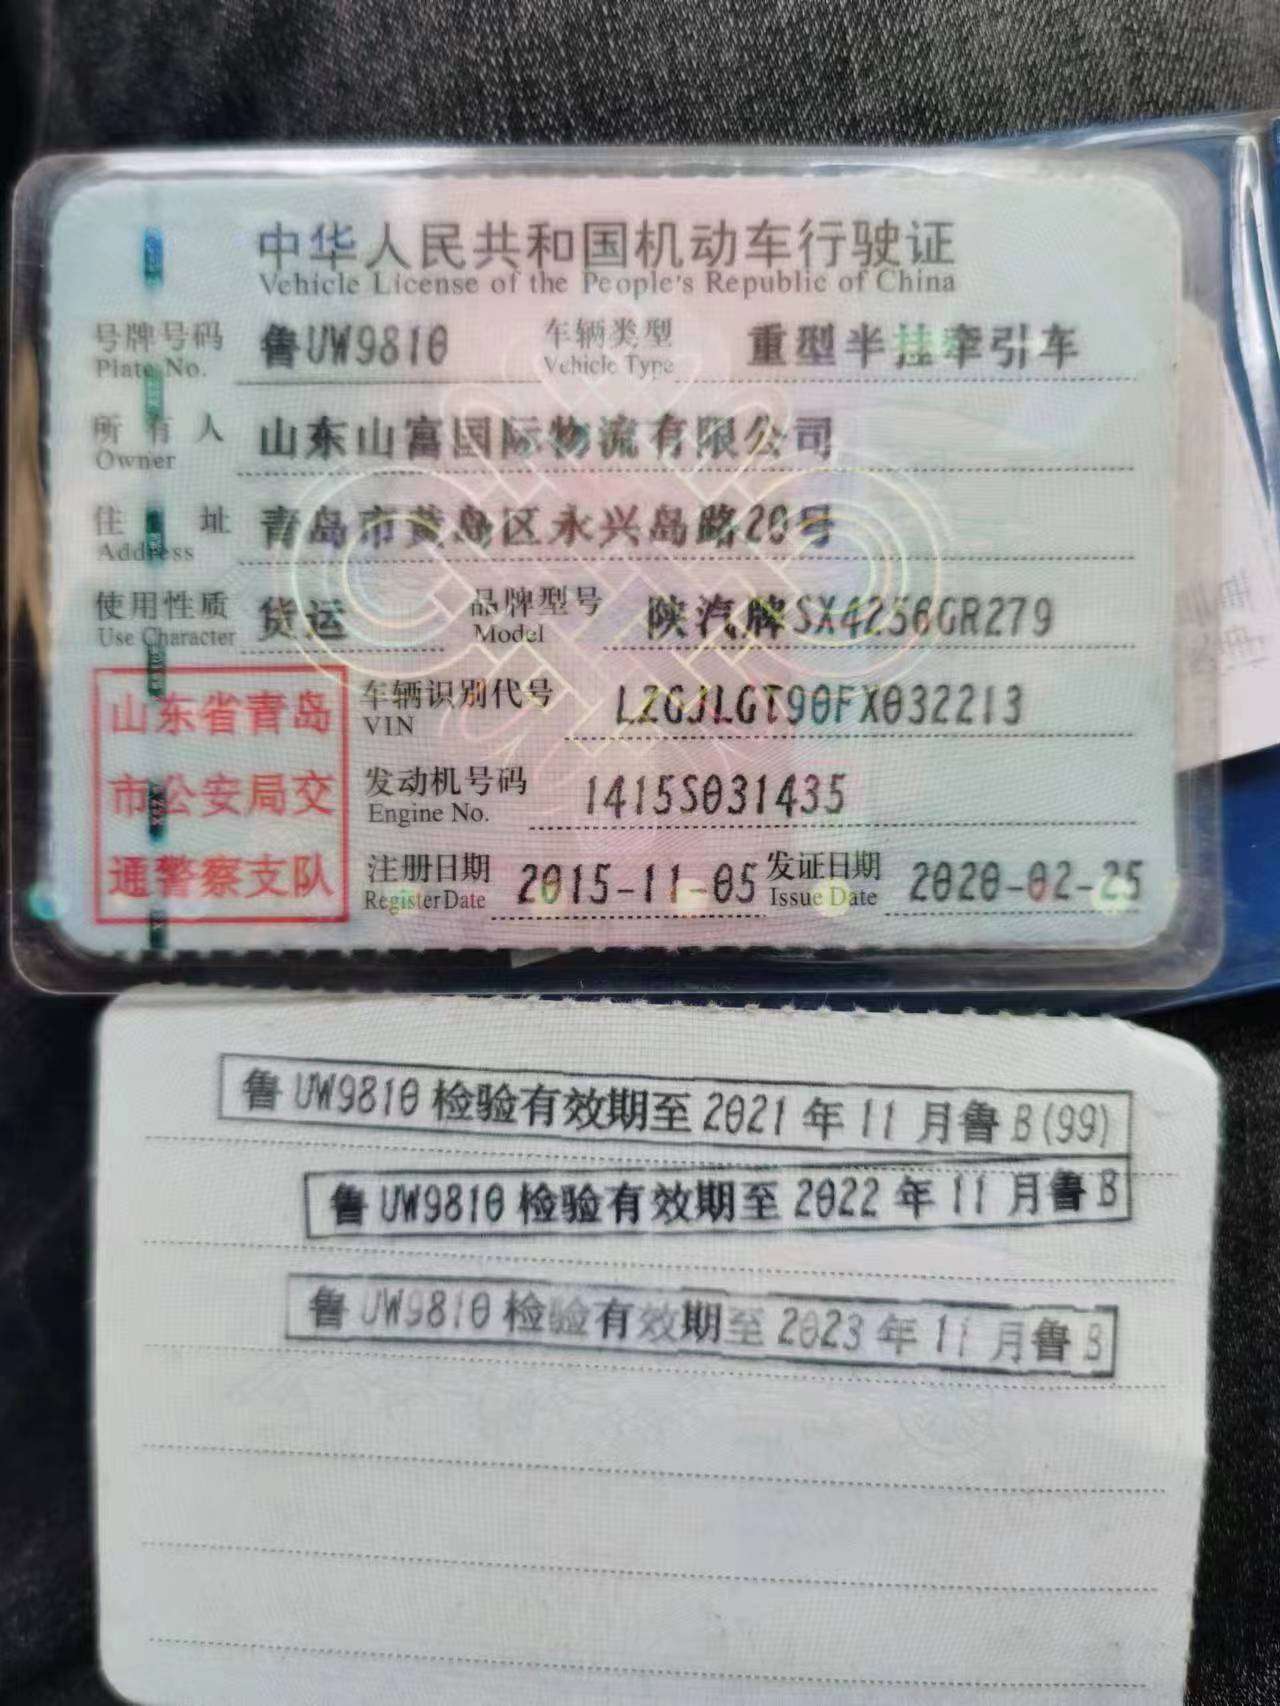 中华人民共和国机动车行驶证
Vehicle License of the People's Republic of China
号牌号码 鲁UW9810 车辆类型 重型半挂牵引车
Plate No. Vehicle Type
所有人 山东山富国际物流有限公司
Owner
住址 青岛市黄岛区永兴岛路20号
Address
使用性质 货运 品牌型号 陕汽牌SX4256GR279
Use Character Model
山东省青岛
市公安局交
通警察支队
车辆识别代号 LZGJLGT90FX032213
VIN
发动机号码 1415S031435
Engine No.
注册日期 2015-11-05 发证日期 2020-02-25
Register Date Issue Date
鲁UW9810检验有效期至2021年11月鲁B(99)
鲁UW9810检验有效期至2022年11月鲁B
鲁UW9810检验有效期至2023年11月鲁B